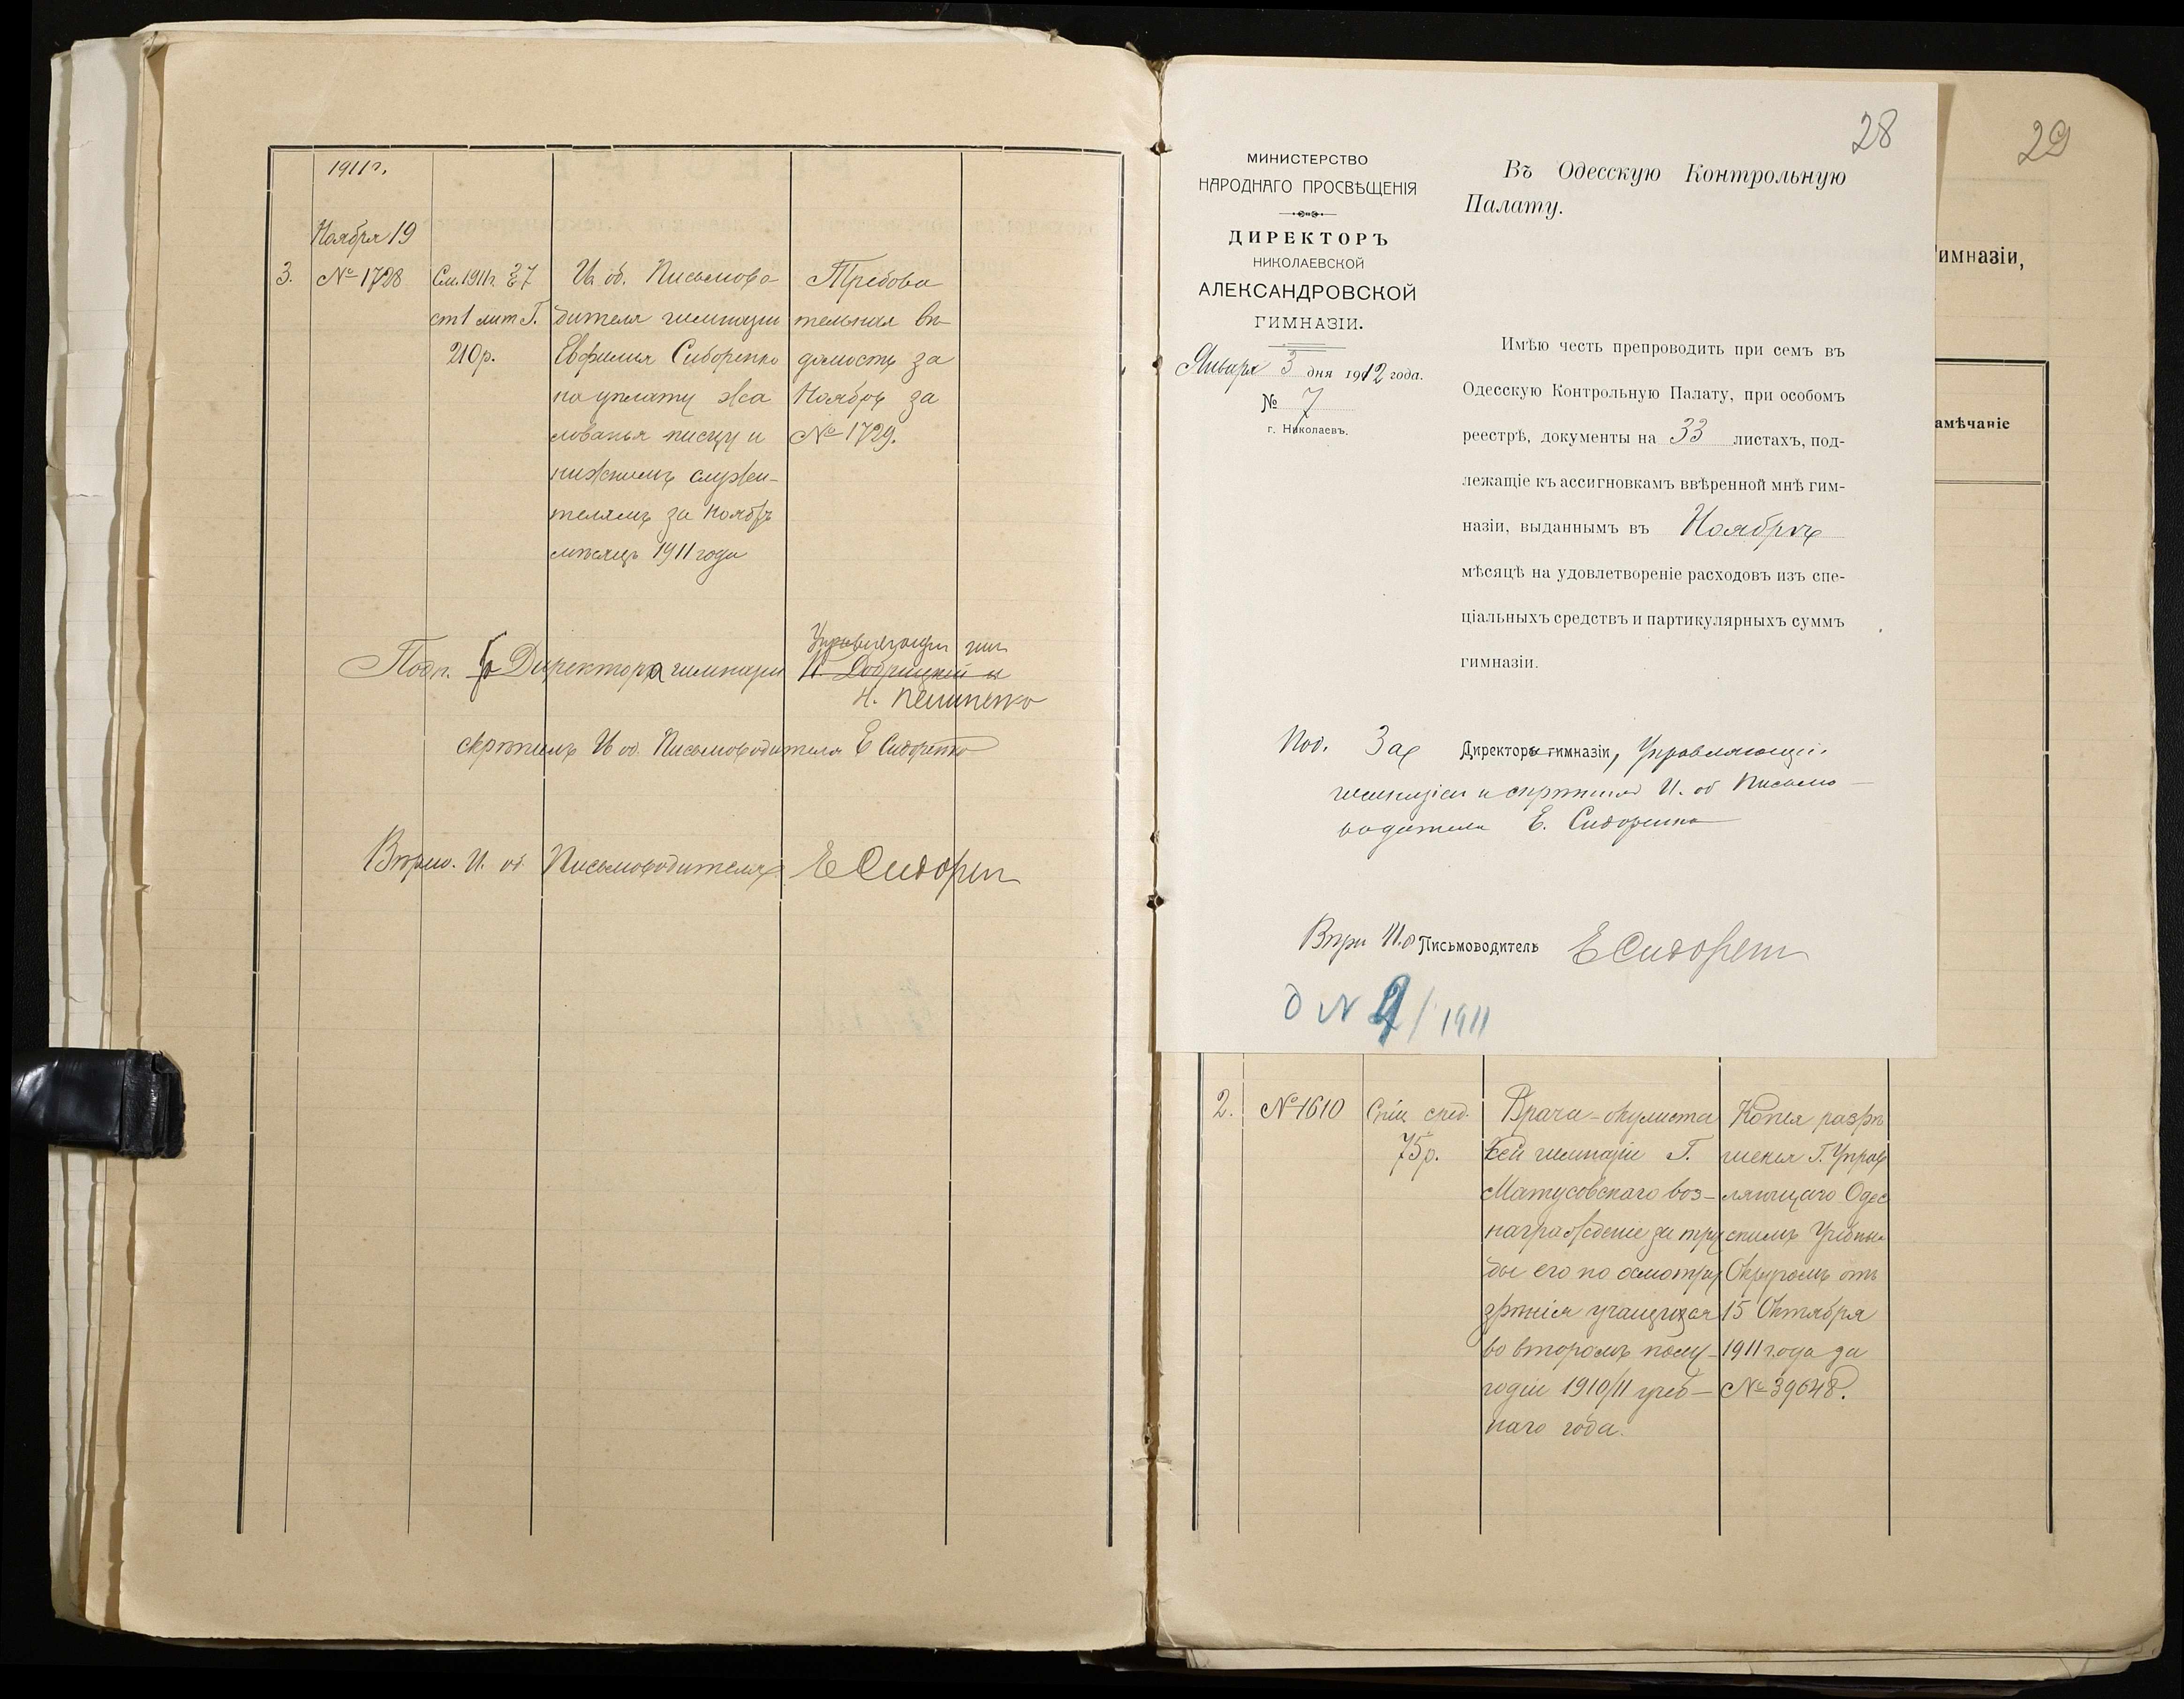 1911 г.
Ноября 19
3.
№ 1728
См. 1911 г. § 7
ст 1 лит Г.
210 р.
И. об. Письмово-
дителя гимназіи
Евфимія Сидоренко
на уплату жа
лованья писцу и
нижнимъ служи-
телямъ за Ноябрь
мѣсяцъ 1911 года
Требова
тельная вѣ-
домость за
Ноябрь за
№ 1729.
Подп. Директора гимназіи
Управляющій
Скрѣпилъ И об. Письмоводителя Е Сидоренко
Вѣрно. И. об. Письмоводителя Е Сидорен
28
МИНИСТЕРСТВО
НАРОДНАГО ПРОСВѢЩЕНІЯ
ДИРЕКТОРЪ
НИКОЛАЕВСКОЙ
АЛЕКСАНДРОВСКОЙ
ГИМНАЗІИ.
Января 3 дня 1912 года.
№ 7
г. Николаевъ.
Въ Одесскую Контрольную
Палату.
Имѣю честь препроводить при семъ въ
Одесскую Контрольную Палату, при особомъ
реестрѣ, документы на 33 листахъ, под-
лежащіе къ ассигновкамъ ввѣренной мнѣ гим-
назіи, выданнымъ въ Ноябрѣ
мѣсяцѣ на удовлетвореніе расходовъ изъ спе-
ціальныхъ средствъ и партикулярныхъ суммъ
гимназіи.
Под. За Директора гимназіи, Управляющій
гимназіи и скрѣпилъ И. об Письмо-
водителя Е. Сидоренко
Вѣрн И.о Письмоводитель Е Сидорен
1911
29
имназіи,
амѣчаніе
2.
№ 1610
Спец. сред.
75 р.
Врача-окулиста
сей гимназіи Г.
Матусовскаго воз-
награжденіе за тру
ды его по осмотру
зрѣнія учащихся
во второмъ полу-
годіи 1910/11 учеб-
наго года.
Копія разрѣ
шенія Г. Управ
ляющаго Одес
скимъ Учебны
Округомъ отъ
15 Октября
1911 года за
№ 39648.